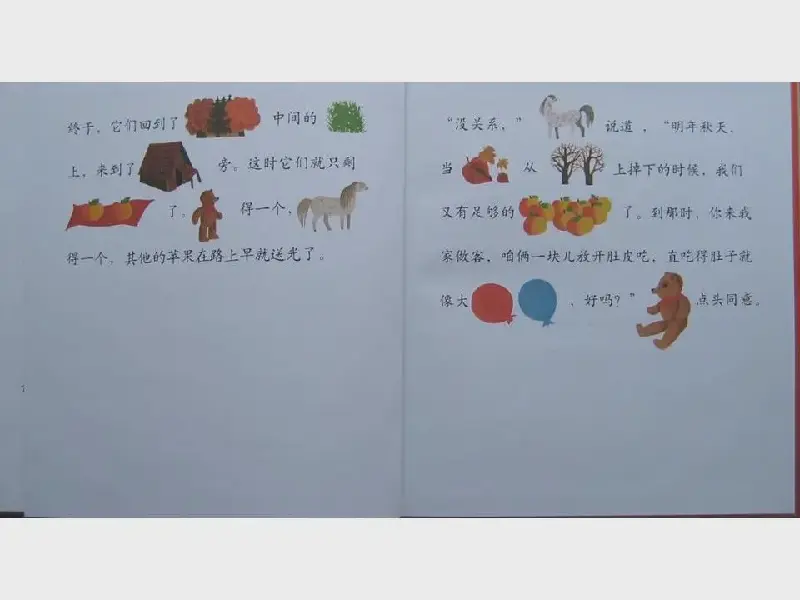 终于，它们回到了 中间的
上，来到了 旁。这时它们就只剩
了。 得一个，
得一个，其他的苹果在路上早就送光了。
“没关系，” 说道，“明年秋天，
当 从 上掉下的时候，我们
又有足够的 了。到那时，你来我
家做客，咱俩一块儿放开肚皮吃，直吃得肚子就
像大 ，好吗？” 点头同意。